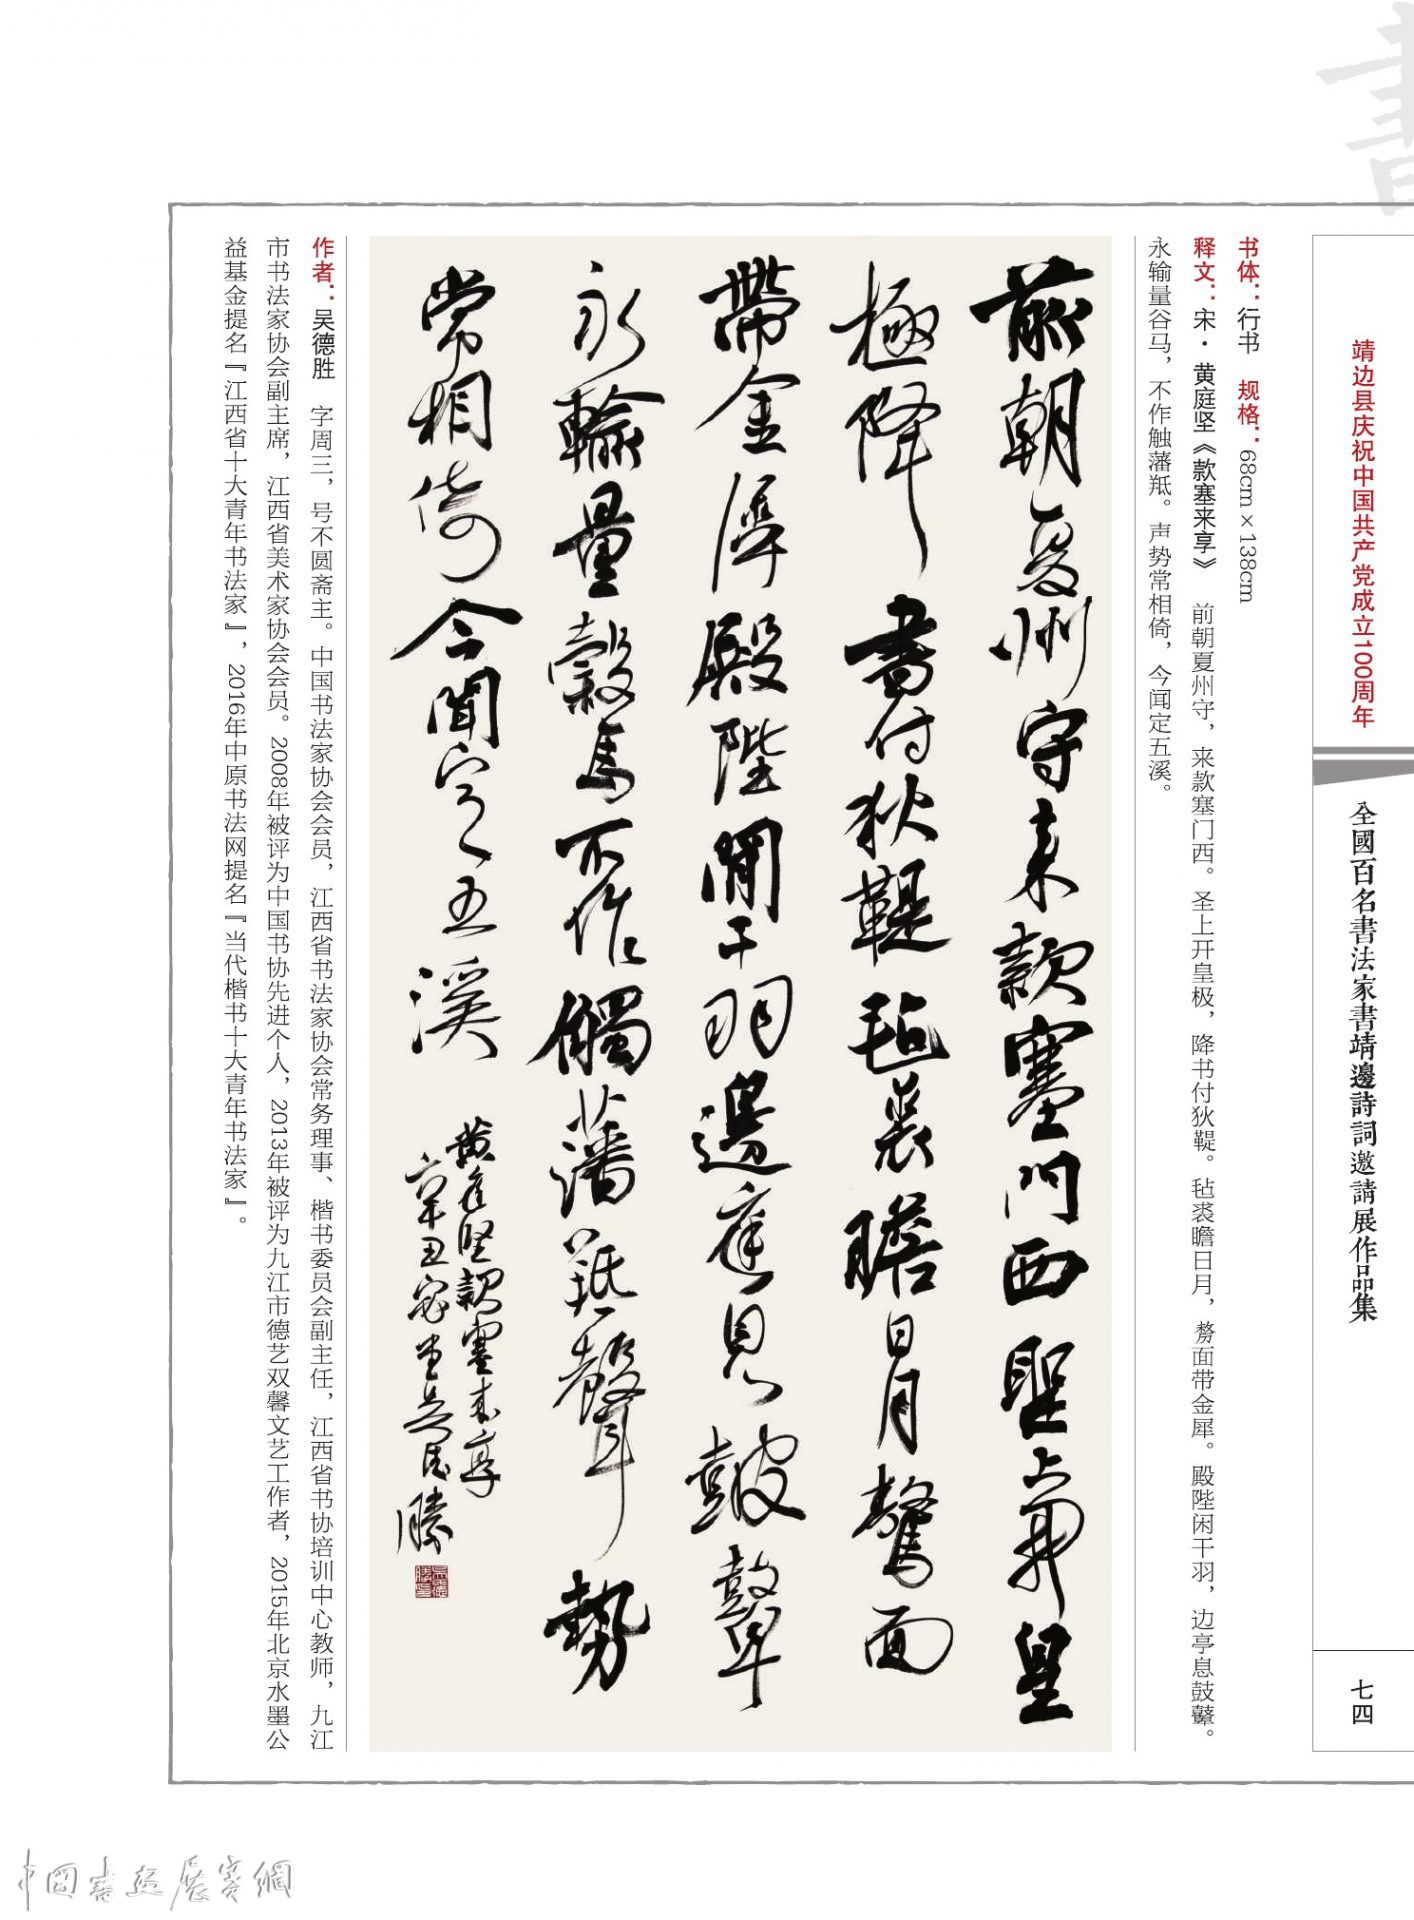 書
靖边县庆祝中国共产党成立100周年
全國百名書法家書靖邊詩詞邀請展作品集
七四
书体：行书　规格：68cm×138cm
释文：宋·黄庭坚《款塞来享》　前朝夏州守，来款塞门西。圣上开皇极，降书付狄鞮。毡裘瞻日月，剺面带金犀。殿陛闲干羽，边亭息鼓鼙。
永输量谷马，不作触藩羝。声势常相倚，今闻定五溪。
前朝夏州守来款塞門西聖上開皇
極降書付狄鞮毡裘瞻日月面
帶金犀殿陛閒干羽邊庭息鼓鼙
永輸量穀馬不作觸藩羝聲勢
常相倚今聞定五溪
黄庭堅款塞来享
辛丑吴德勝
作者：吴德胜　字周三，号不圆斋主。中国书法家协会会员，江西省书法家协会常务理事、楷书委员会副主任，江西省书协培训中心教师，九江
市书法家协会副主席，江西省美术家协会会员。2008年被评为中国书协先进个人，2013年被评为九江市德艺双馨文艺工作者，2015年北京水墨公
益基金提名『江西省十大青年书法家』，2016年中原书法网提名『当代楷书十大青年书法家』。
中國書画展賽網